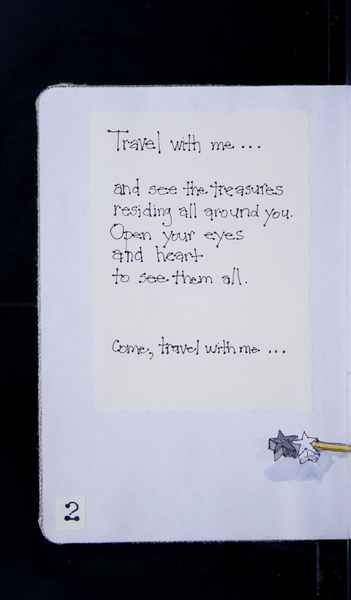 Travel with me ...
and see the treasures
residing all around you.
Open your eyes
and heart
to see them all.
Come, travel with me ...
2